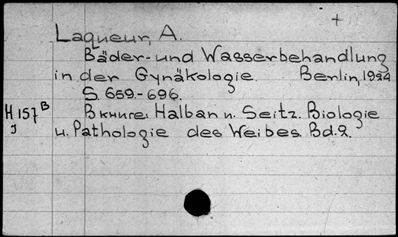 +
Laqueur, A.
Bäder- und Wasserbehandlung
in der Gynäkologie. Berlin, 1924
S. 659.-696.
H 157 B Вкниге: Halban u. Seitz. Biologie
J u. Pathologie des Weibes. Bd. 2.